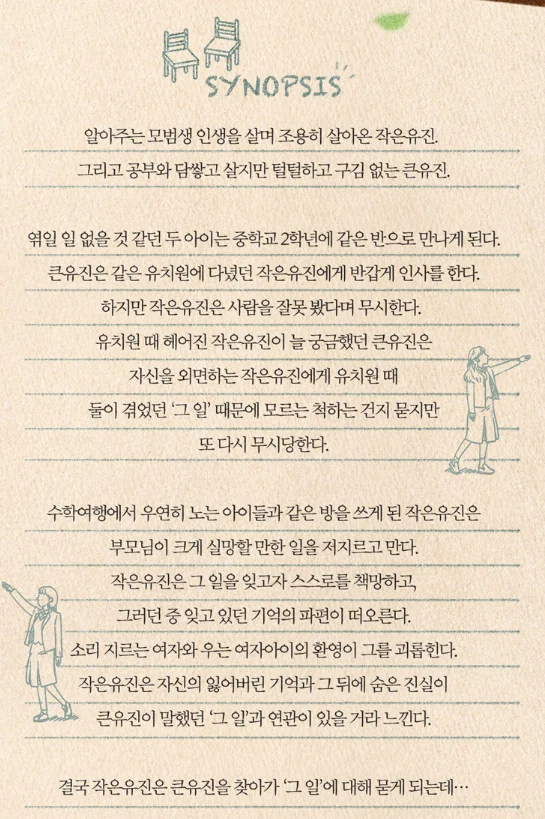 SYNOPSIS
알아주는 모범생 인생을 살며 조용히 살아온 작은유진.
그리고 공부와 담쌓고 살지만 털털하고 구김 없는 큰유진.
엮일 일 없을 것 같던 두 아이는 중학교 2학년에 같은 반으로 만나게 된다.
큰유진은 같은 유치원에 다녔던 작은유진에게 반갑게 인사를 한다.
하지만 작은유진은 사람을 잘못 봤다며 무시한다.
유치원 때 헤어진 작은유진이 늘 궁금했던 큰유진은
자신을 외면하는 작은유진에게 유치원 때
둘이 겪었던 ‘그 일’ 때문에 모르는 척하는 건지 묻지만
또 다시 무시당한다.
수학여행에서 우연히 노는 아이들과 같은 방을 쓰게 된 작은유진은
부모님이 크게 실망할 만한 일을 저지르고 만다.
작은유진은 그 일을 잊고자 스스로를 책망하고,
그러던 중 잊고 있던 기억의 파편이 떠오른다.
소리 지르는 여자와 우는 여자아이의 환영이 그를 괴롭힌다.
작은유진은 자신의 잃어버린 기억과 그 뒤에 숨은 진실이
큰유진이 말했던 ‘그 일’과 연관이 있을 거라 느낀다.
결국 작은유진은 큰유진을 찾아가 ‘그 일’에 대해 묻게 되는데…